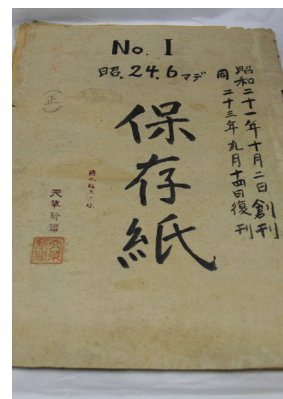 No. I
昭.24.6マデ
昭和二十一年十月二日創刊
同二十三年九月十四日復刊
保存紙
(正)
天草新聞